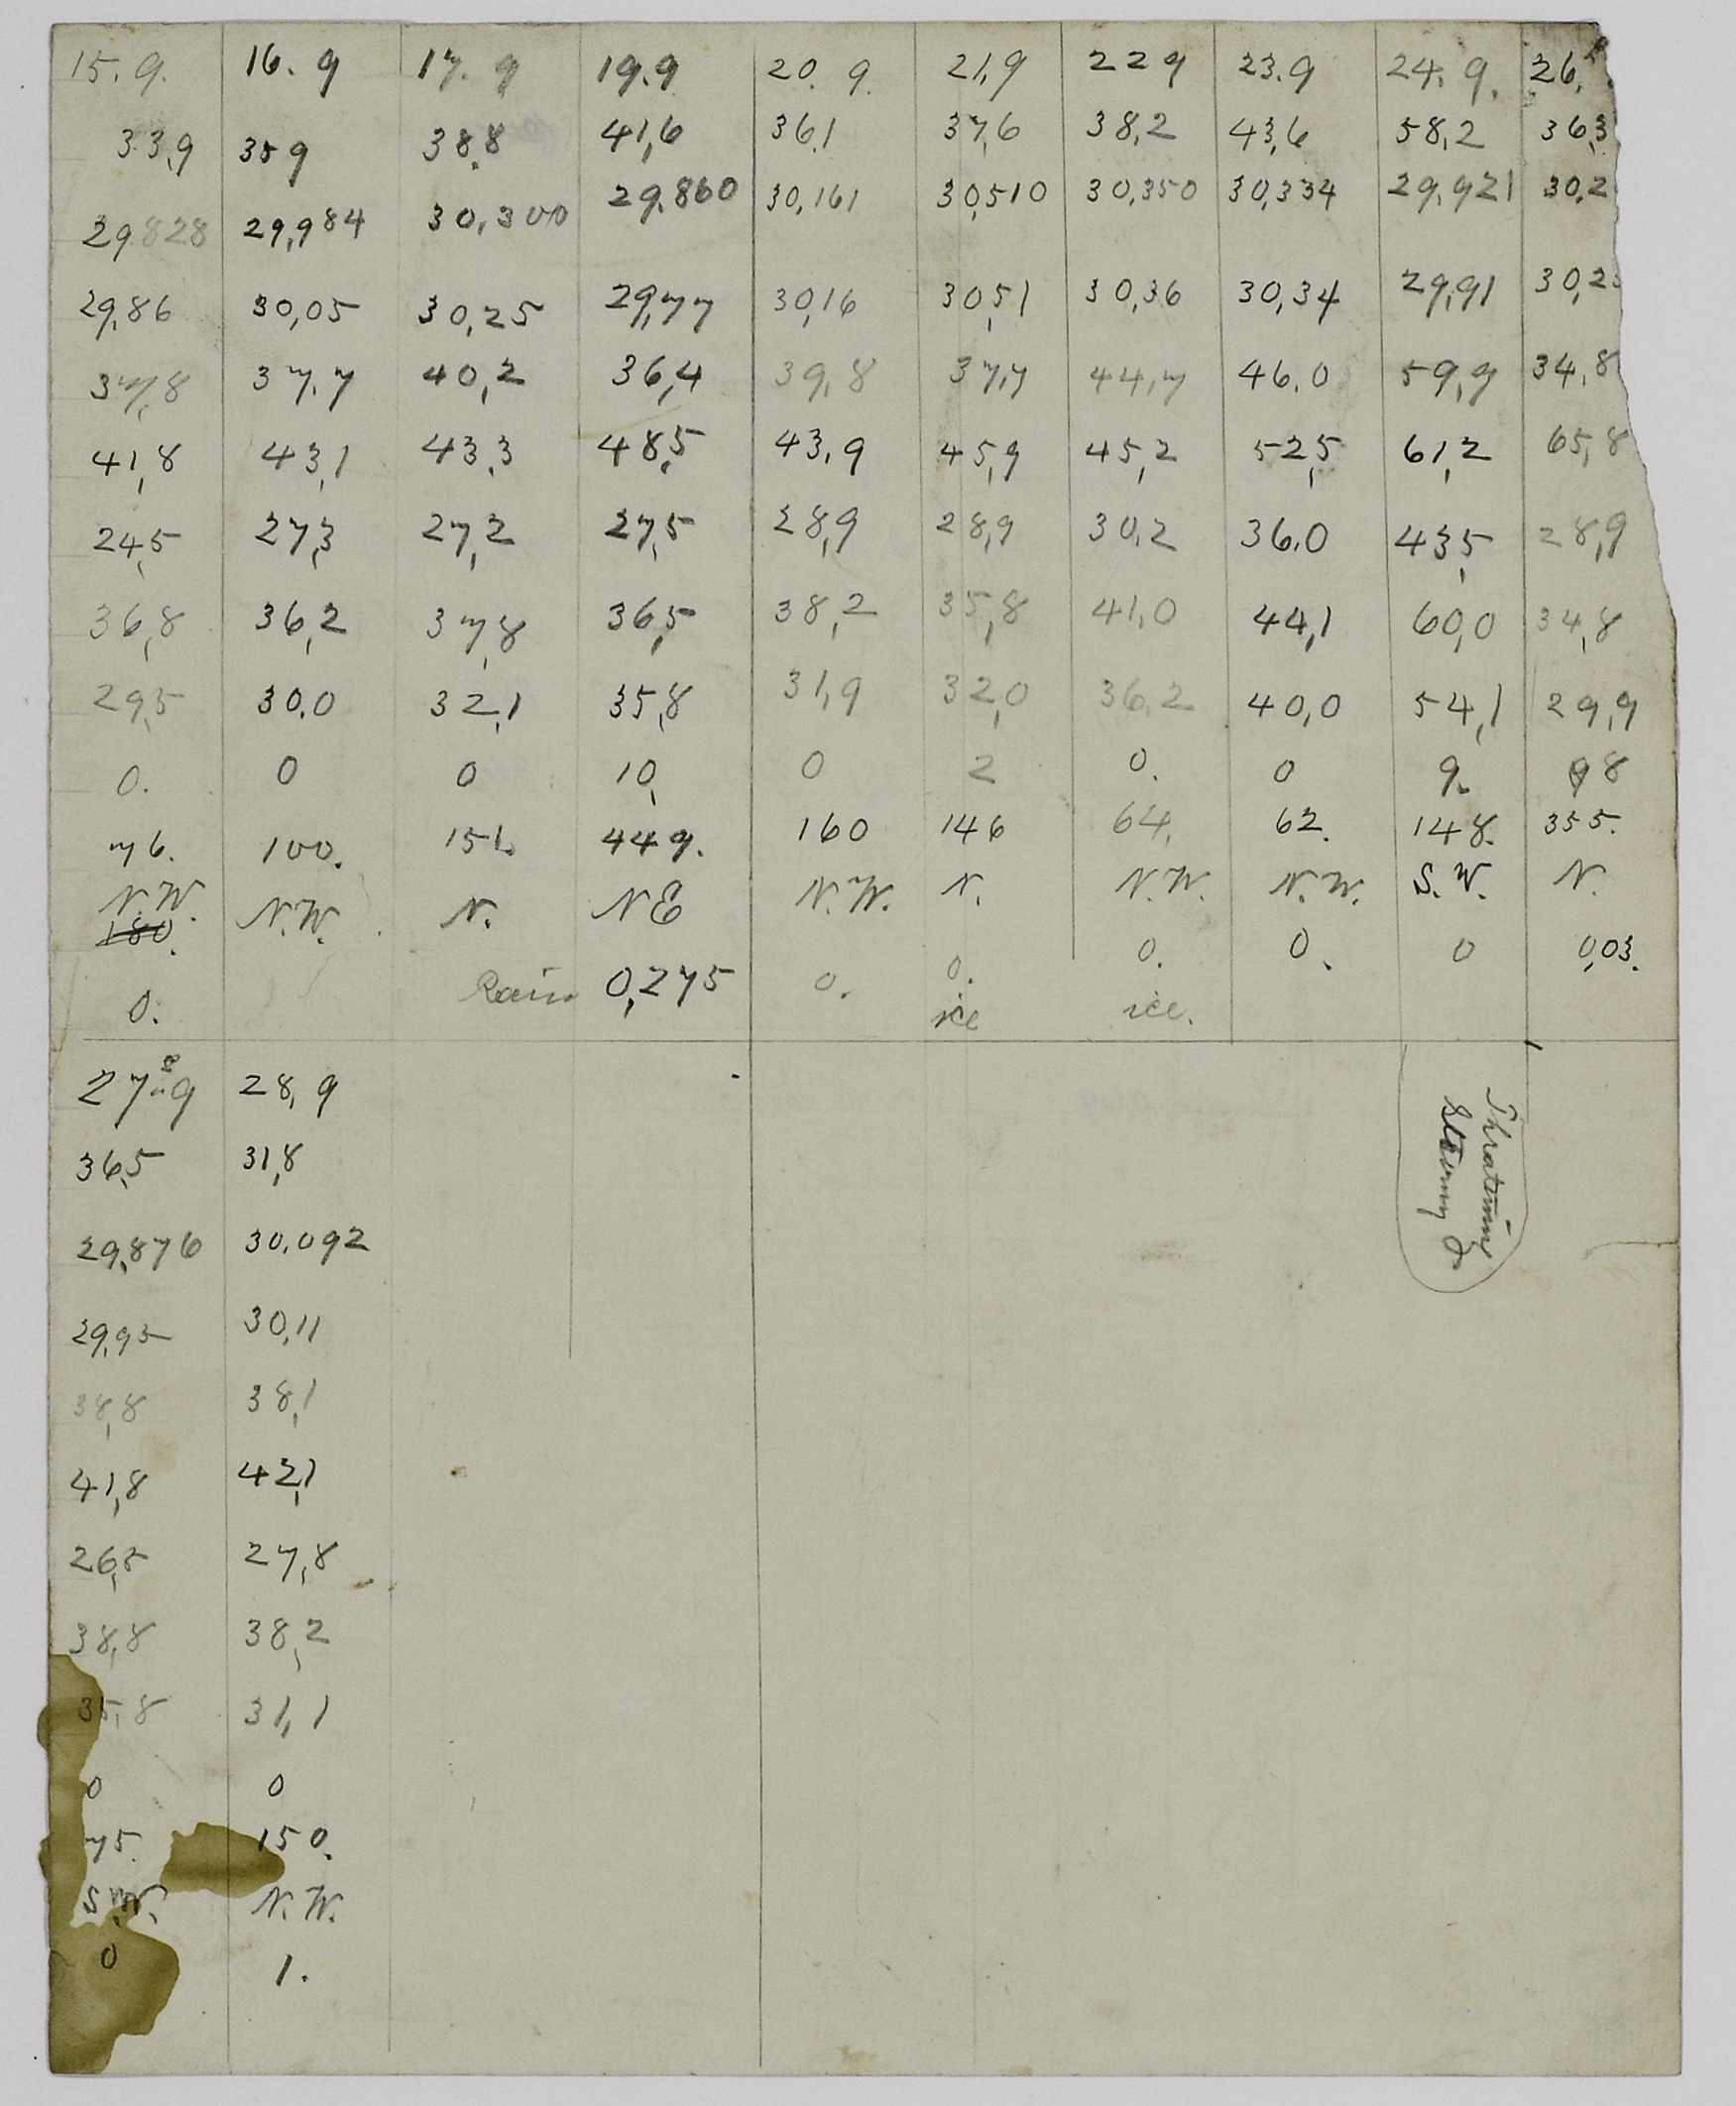 15. 9. 16. 9 17. 9 19.9 20. 9. 21,9 22 9 23.9 24. 9. 26,
33,9 35 9 38.8 41,6 36,1 37,6 38,2 43,6 58,2 36,3
29,828 29,984 30,300 29,860 30,161 30,510 30,350 30,334 29,921 30,2
29,86 30,05 30,25 29,77 30,16 30,51 30,36 30,34 29,91 30,2
37,8 37,7 40,2 36,4 39,8 37,7 44,7 46,0 59,9 34,8
41,8 43,1 43,3 48,5 43,9 45,9 45,2 52,5 61,2 65,8
24,5 27,3 27,2 27,5 28,9 28,9 30,2 36,0 43,5 28,9
36,8 36,2 37,8 36,5 38,2 35,8 41,0 44,1 60,0 34,8
29,5 30,0 32,1 35,8 31,9 32,0 36,2 40,0 54,1 29,9
0. 0 0 10, 0 2 0. 0 9. 98
76. 100. 151. 449. 160 146 64. 62. 148. 355.
N.W. N.W. N. NE N.W. N. N.W. N.W. S.W. N.
180.
0. Rain 0,275 0. 0. 0. 0. 0 0,03.
ice ice.
27-9 28, 9
36,5 31,8
29,876 30,092
29,95 30,11
38,8 38,1
41,8 42,1
26,5 27,8
38,8 38,2
35,8 31,1
0 0
75. 150.
S.W. N.W.
0 1.
Thratening
Stormy